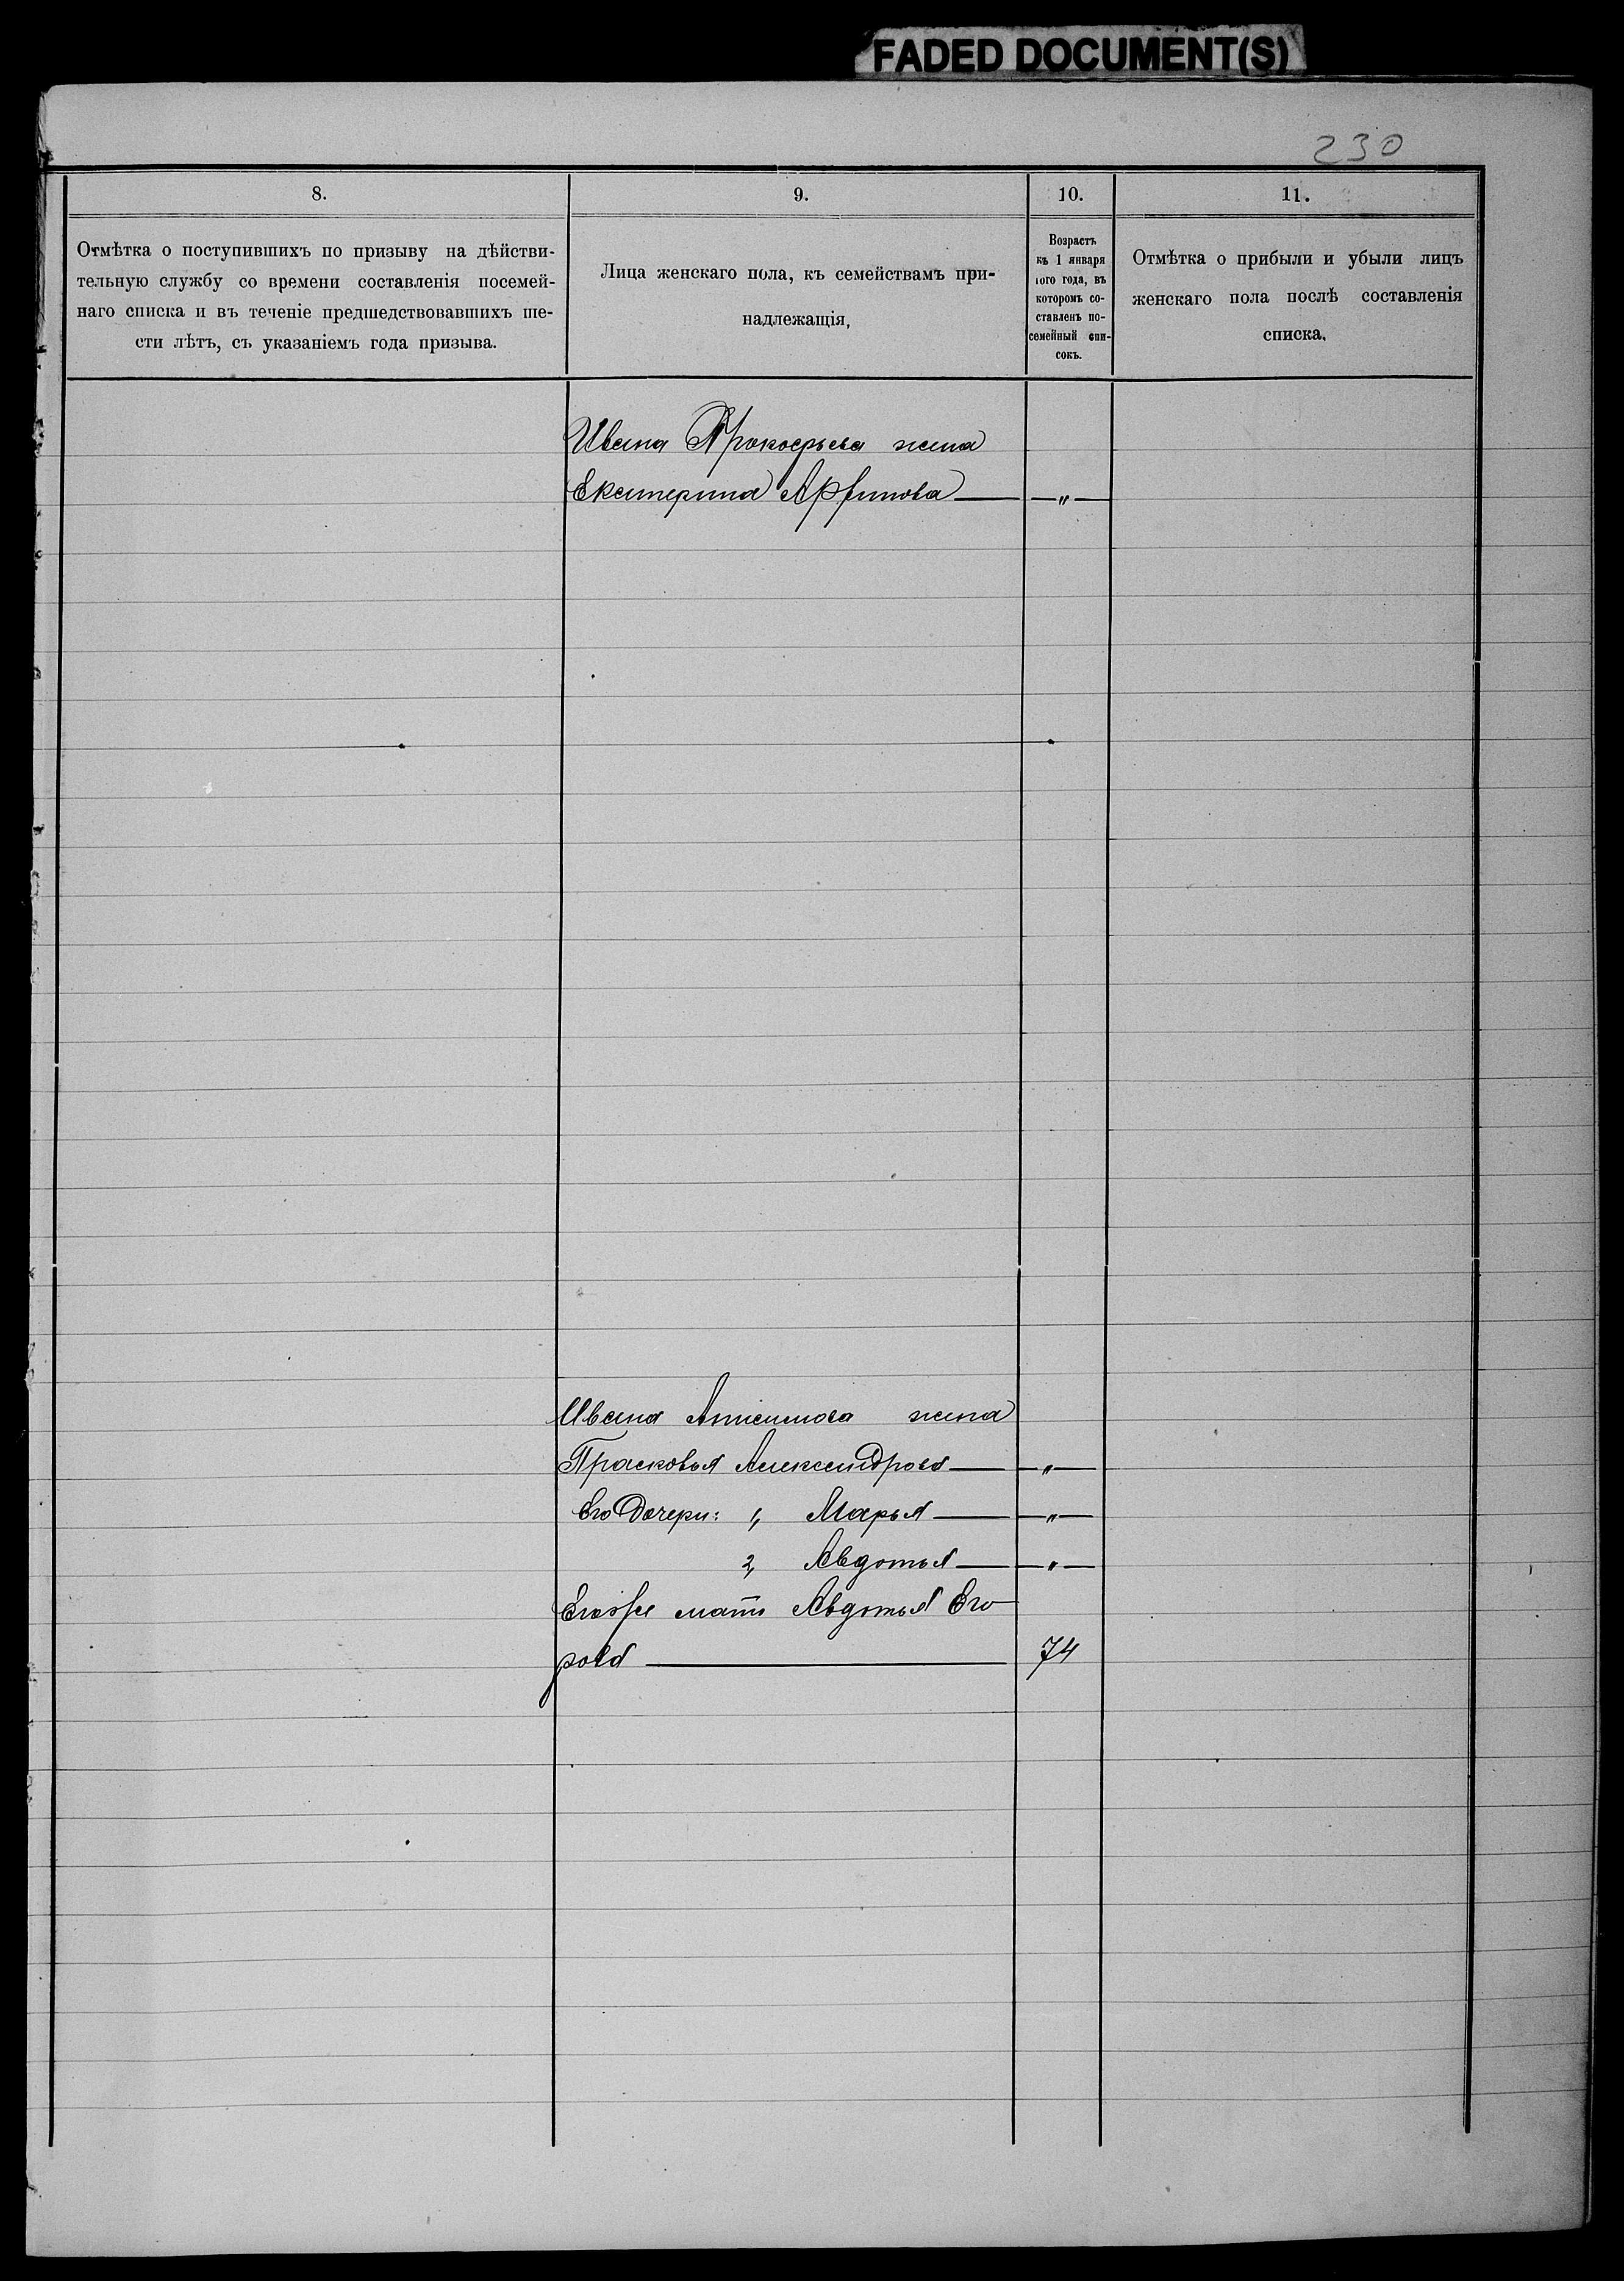 FADED DOCUMENT(S)
230
8.
Отмѣтка о поступившихъ по призыву на дѣйстви-
тельную службу со времени составленія посемей-
наго списка и въ теченіе предшедствовавшихъ ше-
сти лѣтъ, съ указаніемъ года призыва.
9.
Лица женскаго пола, къ семействамъ при-
надлежащія,
10.
Возрастъ
къ 1 января
того года, въ
которомъ со-
ставленъ по-
семейный спи-
сокъ.
11.
Отмѣтка о прибыли и убыли лицъ
женскаго пола послѣ составленія
списка.
Ивана Прокофьева жена
Екатерина — „ —
Ивана жена
Прасковья Александрова — „ —
Его Дочери: 1, Марья — „ —
2, Авдотья — „ —
Егоже мать Авдотья Его
рова — 74